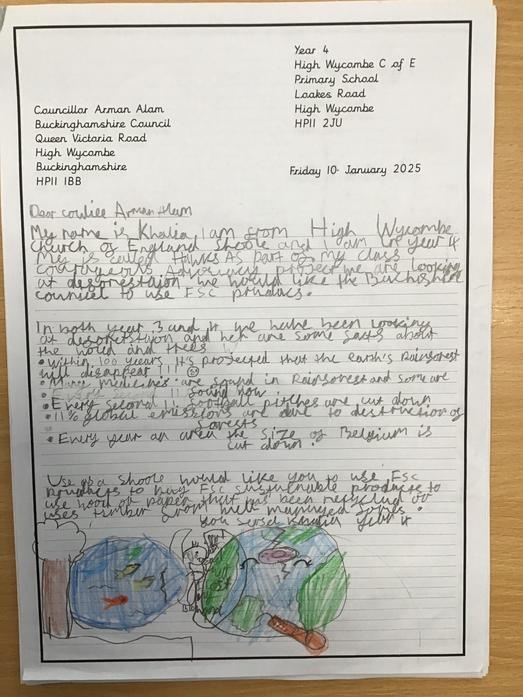 Year 4
High Wycombe C of E
Primary School
Loakes Road
High Wycombe
HP11 2JU
Councillor Arman Alam
Buckinghamshire Council
Queen Victoria Road
High Wycombe
Buckinghamshire
HP11 1BB
Friday 10 January 2025
Dear Arman Alam
My name is Khalia, I am from High Wycombe
Church of England Shoole and I am in year 4
My is called Hawks As part of my class
courageous Advocacy project we are looking
at desorestaion we would like the
councel to use FSC producs.
In both year 3 and 4 we have been looking
at and her are some sacts about
the wood and trees
• within 100 years it's projected that the earth's Rainsorest
will disappear !!!
• Many medicines are sound in Rainsorest and some are
sound now.
• Every second 11 football pitches are cut down
• 11% global emissions are due to destruction of
sorests
• Every year an area the size of Belgium is
cut down.
Us as a shoole would like you to use FSC
products to buy FSC sustainable products to
use wood or paper that has been recycled or
uses timber srom well managed
Khalia year 4